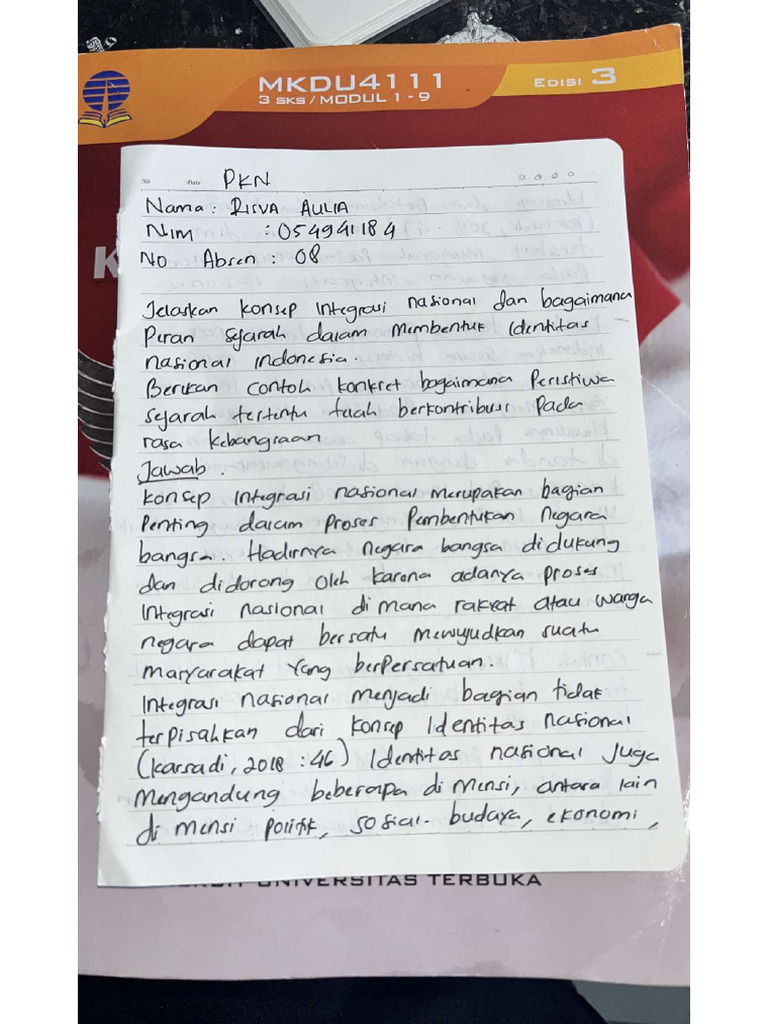 MKDU4111
3 SKS / MODUL 1 - 9
EDISI 3
No Date PKN
Nama : RISVA AULIA
NIM : 054941184
No Absen : 08
Jelaskan konsep Integrasi nasional dan bagaimana
Peran sejarah dalam membentuk Identitas
nasional indonesia.
Berikan contoh konkret bagaimana Peristiwa
sejarah tertentu tuah berkontribusi Pada
rasa kebangsaan
Jawab.
Konsep Integrasi nasional merupakan bagian
Penting dalam Proses Pembentukan Negara
bangsa. Hadirnya negara bangsa didukung
dan didorong oleh karena adanya proses
Integrasi nasional di mana rakyat atau warga
negara dapat bersatu mewujudkan suatu
masyarakat yang berpersatuan.
Integrasi nasional menjadi bagian tidak
terpisahkan dari konsep Identitas nasional
(Karsadi, 2018 : 46) Identitas nasional juga
mengandung beberapa dimensi, antara lain
dimensi politik, sosial-budaya, ekonomi,
UNIVERSITAS TERBUKA